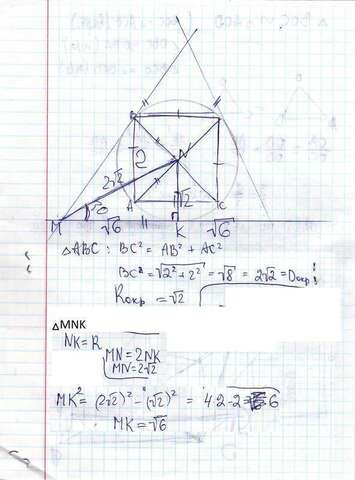 B
2
N
2√2
A
√2
C
30
M
√6
K
√6
△ABC : BC² = AB² + AC²
BC = √2² + 2² = √8 = 2√2 = Dокр!
Rокр = √2
△MNK
NK = R
MN = 2NK
MN = 2√2
MK² = (2√2)² - (√2)² = 4·2 - 2 = 6
MK = √6